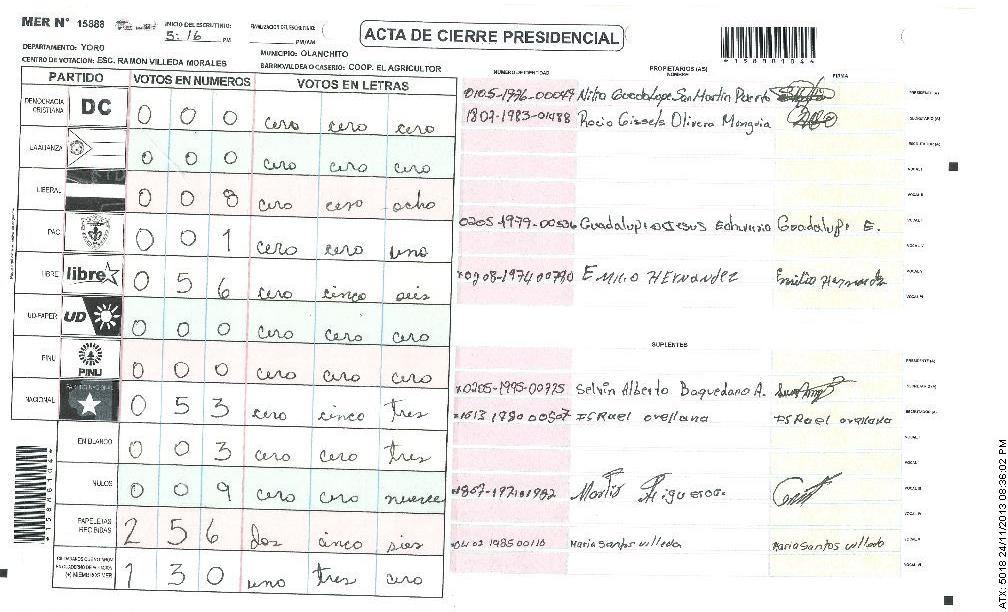 MER N° 15888
INICIO DEL ESCRUTINIO:
5:16 PM
FINALIZACION DEL ESCRUTINIO:
PM/AM
ACTA DE CIERRE PRESIDENCIAL
DEPARTAMENTO: YORO
MUNICIPIO: OLANCHITO
CENTRO DE VOTACION: ESC. RAMON VILLEDA MORALES
BARRIO/ALDEA O CASERIO: COOP. EL AGRICULTOR
PARTIDO VOTOS EN NUMEROS VOTOS EN LETRAS
DEMOCRACIA CRISTIANA DC 0 0 0 cero cero cero
LA ALIANZA 0 0 0 cero cero cero
LIBERAL 0 0 8 cero cero ocho
PAC 0 0 1 cero cero uno
LIBRE libre 0 5 6 cero cinco seis
UD-FAPER UD 0 0 0 cero cero cero
PINU PINU 0 0 0 cero cero cero
NACIONAL PARTIDO NACIONAL 0 5 3 cero cinco tres
EN BLANCO 0 0 3 cero cero tres
NULOS 0 0 9 cero cero nueve
PAPELETAS RECIBIDAS 2 5 6 dos cinco sies
(+) MIEMBROS MER 1 3 0 uno tres cero
NUMERO DE IDENTIDAD
PROPIETARIOS (AS)
NOMBRE
FIRMA
Guadalupe San Martin PRESIDENTE (A)
1807-1983-01488 Rocio Gissela Olivera Munguia SECRETARIO (A)
VOCAL I
VOCAL II
0205-1979-00536 Guadalupe E.
VOCAL IV
0208-1974 00790 EMILIO HERNANDEZ Emilio Hernandez VOCAL V
VOCAL VI
SUPLENTES
PRESIDENTE (A)
0205-1995-00725 Selvin Alberto Baquedano A. SECRETARIO (A)
1613 1980 00507 ISRael orellana ISRael orellana
VOCAL I
VOCAL II
Figueroa VOCAL III
VOCAL IV
1985 00110 Maria santos villeda Maria santos villeda VOCAL V
VOCAL VI
ATX: 5018 24/11/2013 08:36:02 PM